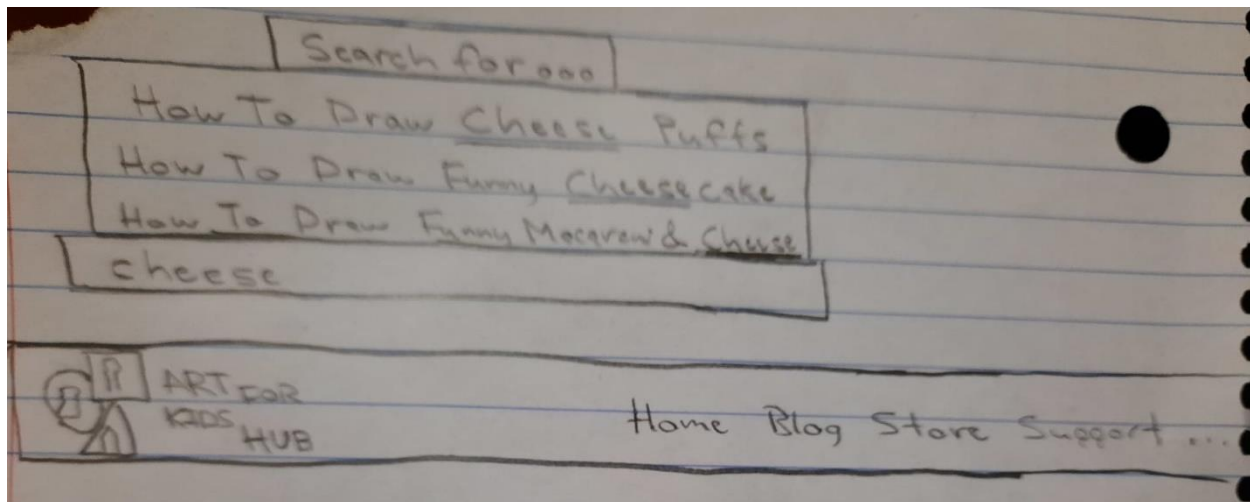 Search for ooo
How To Draw Cheese Puffs
How To Draw Funny Cheesecake
How To Draw Funny Macaroni & Cheese
cheese
ART FOR
KIDS HUB
Home Blog Store Support ...